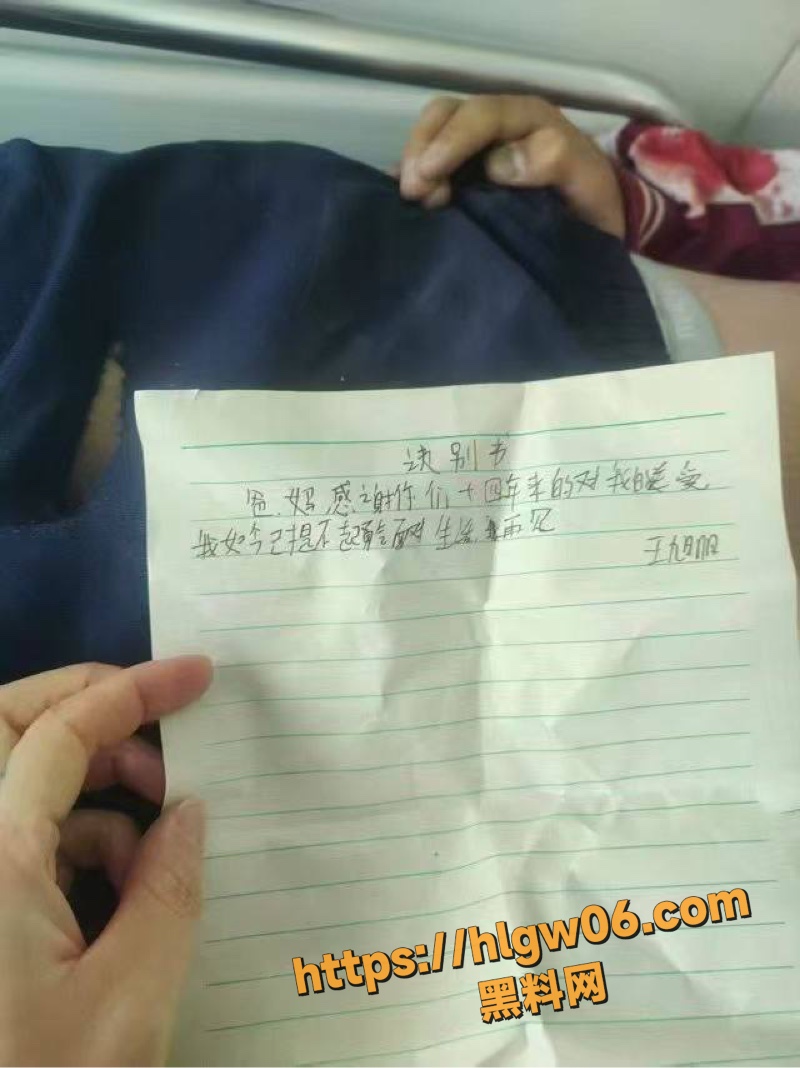 诀别书
爸.妈感谢你们十四年来的对我的关爱
我如今已提不起勇气面对生活,再见
王旭明
https://hlgw06.com
黑料网